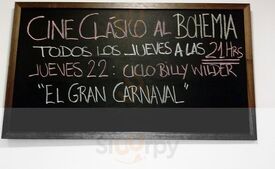 CINE CLÁSICO AL BOHEMIA
TODOS LOS JUEVES A LAS 21 HRS
JUEVES 22: CICLO BILLY WILDER
"EL GRAN CARNAVAL"